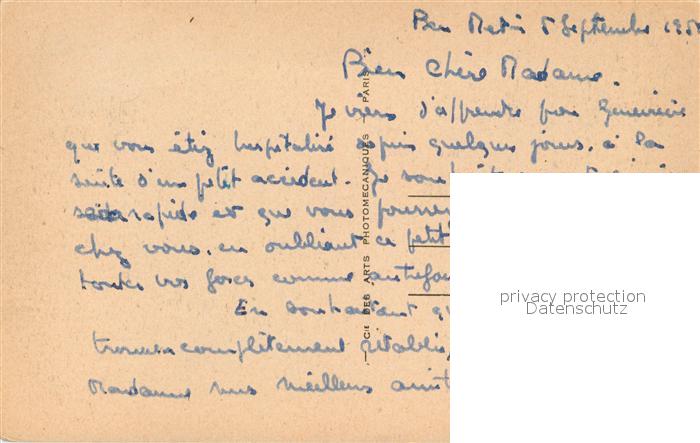 5 Septembre 195
Bien chère Madame.
Je viens d'apprendre par Geneviève
que vous étiez hospitalisé depuis quelques jours, à la
suite d'un petit accident. Je
rapide et que vous
chez vous, en oubliant ce petit
toutes vos forces comme autrefois
En souhaitant
complètement rétablie,
Madame mes meilleurs
CIE DES ARTS PHOTOMECANIQUES PARIS
privacy protection
Datenschutz